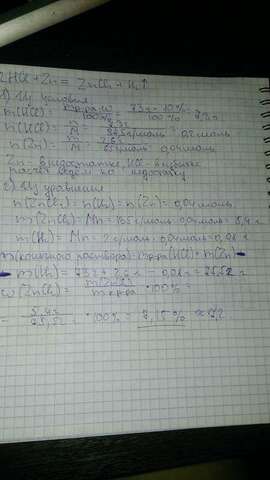 2HCl + Zn = ZnCl₂ + H₂↑
1) Из условия
m(HCl) = mр-ра·ω/100% = 73г·10%/100% = 7,3г
n(HCl) = m/M = 7,3г/36,5г/моль = 0,2 моль
n(Zn) = m/M = 2,6г/65г/моль = 0,04 моль
Zn - в недостатке, HCl - в избытке
расчёт ведём по недостатку
2) Из уравнения
n(ZnCl₂) = n(H₂) = n(Zn) = 0,04 моль
m(ZnCl₂) = Mn = 135 г/моль · 0,04 моль = 5,4 г
m(H₂) = Mn = 2 г/моль · 0,04 моль = 0,08 г
m(конечного раствора) = mр-ра(HCl) + m(Zn) -
- m(H₂) = 73г + 2,6 г - 0,08 г = 75,52 г
ω(ZnCl₂) = m(ZnCl₂)/mр-ра · 100% =
= 5,4г/75,52 · 100% = 7,15%